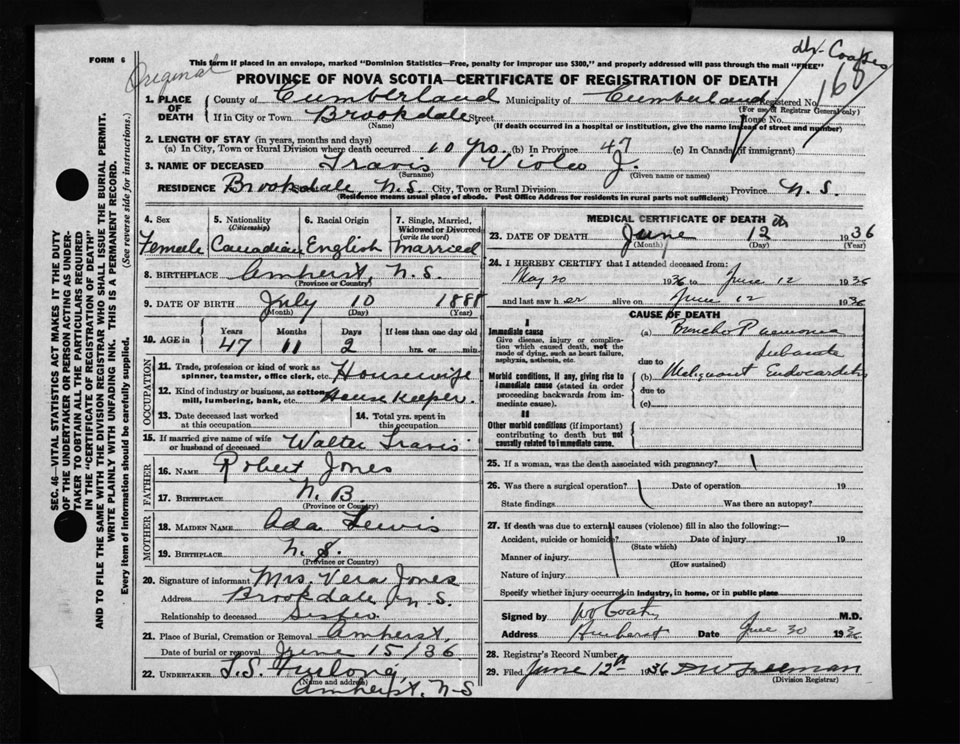 FORM 6
Original
Dr. Coates
168
This form if placed in an envelope, marked "Dominion Statistics—Free, penalty for improper use $300," and properly addressed will pass through the mail "FREE"
PROVINCE OF NOVA SCOTIA—CERTIFICATE OF REGISTRATION OF DEATH
1. PLACE OF DEATH County of Cumberland Municipality of Cumberland Registered No.
(For use of Registrar General only)
If in City or Town Brookdale Street House No.
(Name) (If death occurred in a hospital or institution, give the name instead of street and number)
2. LENGTH OF STAY (in years, months and days)
(a) In City, Town or Rural Division where death occurred 10 yrs. (b) In Province 47 (c) In Canada (if immigrant)
3. NAME OF DECEASED Travis Viola J.
(Surname) (Given name or names)
RESIDENCE Brookdale, N.S. City, Town or Rural Division Province N.S.
(Residence means usual place of abode. Post Office Address for residents in rural parts not sufficient)
4. Sex Female
5. Nationality (Citizenship) Canadian
6. Racial Origin English
7. Single, Married, Widowed or Divorced (write the word) Married
8. BIRTHPLACE Amherst, N.S.
(Province or Country)
9. DATE OF BIRTH July 10 1888
(Month) (Day) (Year)
10. AGE in Years Months Days If less than one day old
47 11 2 hrs. or min.
OCCUPATION
11. Trade, profession or kind of work as spinner, teamster, office clerk, etc. Housewife
12. Kind of industry or business, as cotton mill, lumbering, bank, etc. House Keeper.
13. Date deceased last worked at this occupation
14. Total yrs. spent in this occupation
15. If married give name of wife or husband of deceased Walter Travis
FATHER
16. NAME Robert Jones
17. BIRTHPLACE N.B.
(Province or Country)
MOTHER
18. MAIDEN NAME Ada Lewis
19. BIRTHPLACE N.S.
(Province or Country)
20. Signature of informant Mrs. Vera Jones
Address Brookdale, N.S.
Relationship to deceased Sister
21. Place of Burial, Cremation or Removal Amherst,
Date of burial or removal June 15/36
22. UNDERTAKER T.S. Furlong,
(Name and address)
Amherst, N-S
MEDICAL CERTIFICATE OF DEATH
23. DATE OF DEATH June 12th 1936
(Month) (Day) (Year)
24. I HEREBY CERTIFY that I attended deceased from:
May 20 1936 to June 12 1936
and last saw her alive on June 12 1936
CAUSE OF DEATH
I
Immediate cause
Give disease, injury or complication which caused death, not the mode of dying, such as heart failure, asphyxia, asthenia, etc.
(a) Broncho Pneumonia
due to Subacute
(b) Malignant Endocarditis
due to
(c)
Morbid conditions, if any, giving rise to immediate cause (stated in order proceeding backwards from immediate cause).
II
Other morbid conditions (if important) contributing to death but not causally related to immediate cause.
25. If a woman, was the death associated with pregnancy?
26. Was there a surgical operation? Date of operation 19
State findings Was there an autopsy?
27. If death was due to external causes (violence) fill in also the following:—
Accident, suicide or homicide? Date of injury 19
(State which)
Manner of injury
(How sustained)
Nature of injury
Specify whether injury occurred in industry, in home, or in public place
Signed by Coates M.D.
Address Amherst Date June 30 1936
28. Registrar's Record Number
29. Filed June 12th 1936 D W Freeman
(Division Registrar)
SEC. 46—VITAL STATISTICS ACT MAKES IT THE DUTY
OF THE UNDERTAKER OR PERSON ACTING AS UNDER-
TAKER TO OBTAIN ALL THE PARTICULARS REQUIRED
IN THE "CERTIFICATE OF REGISTRATION OF DEATH"
AND TO FILE THE SAME WITH THE DIVISION REGISTRAR WHO SHALL ISSUE THE BURIAL PERMIT.
WRITE PLAINLY WITH UNFADING INK. THIS IS A PERMANENT RECORD.
Every item of information should be carefully supplied. (See reverse side for instructions.)